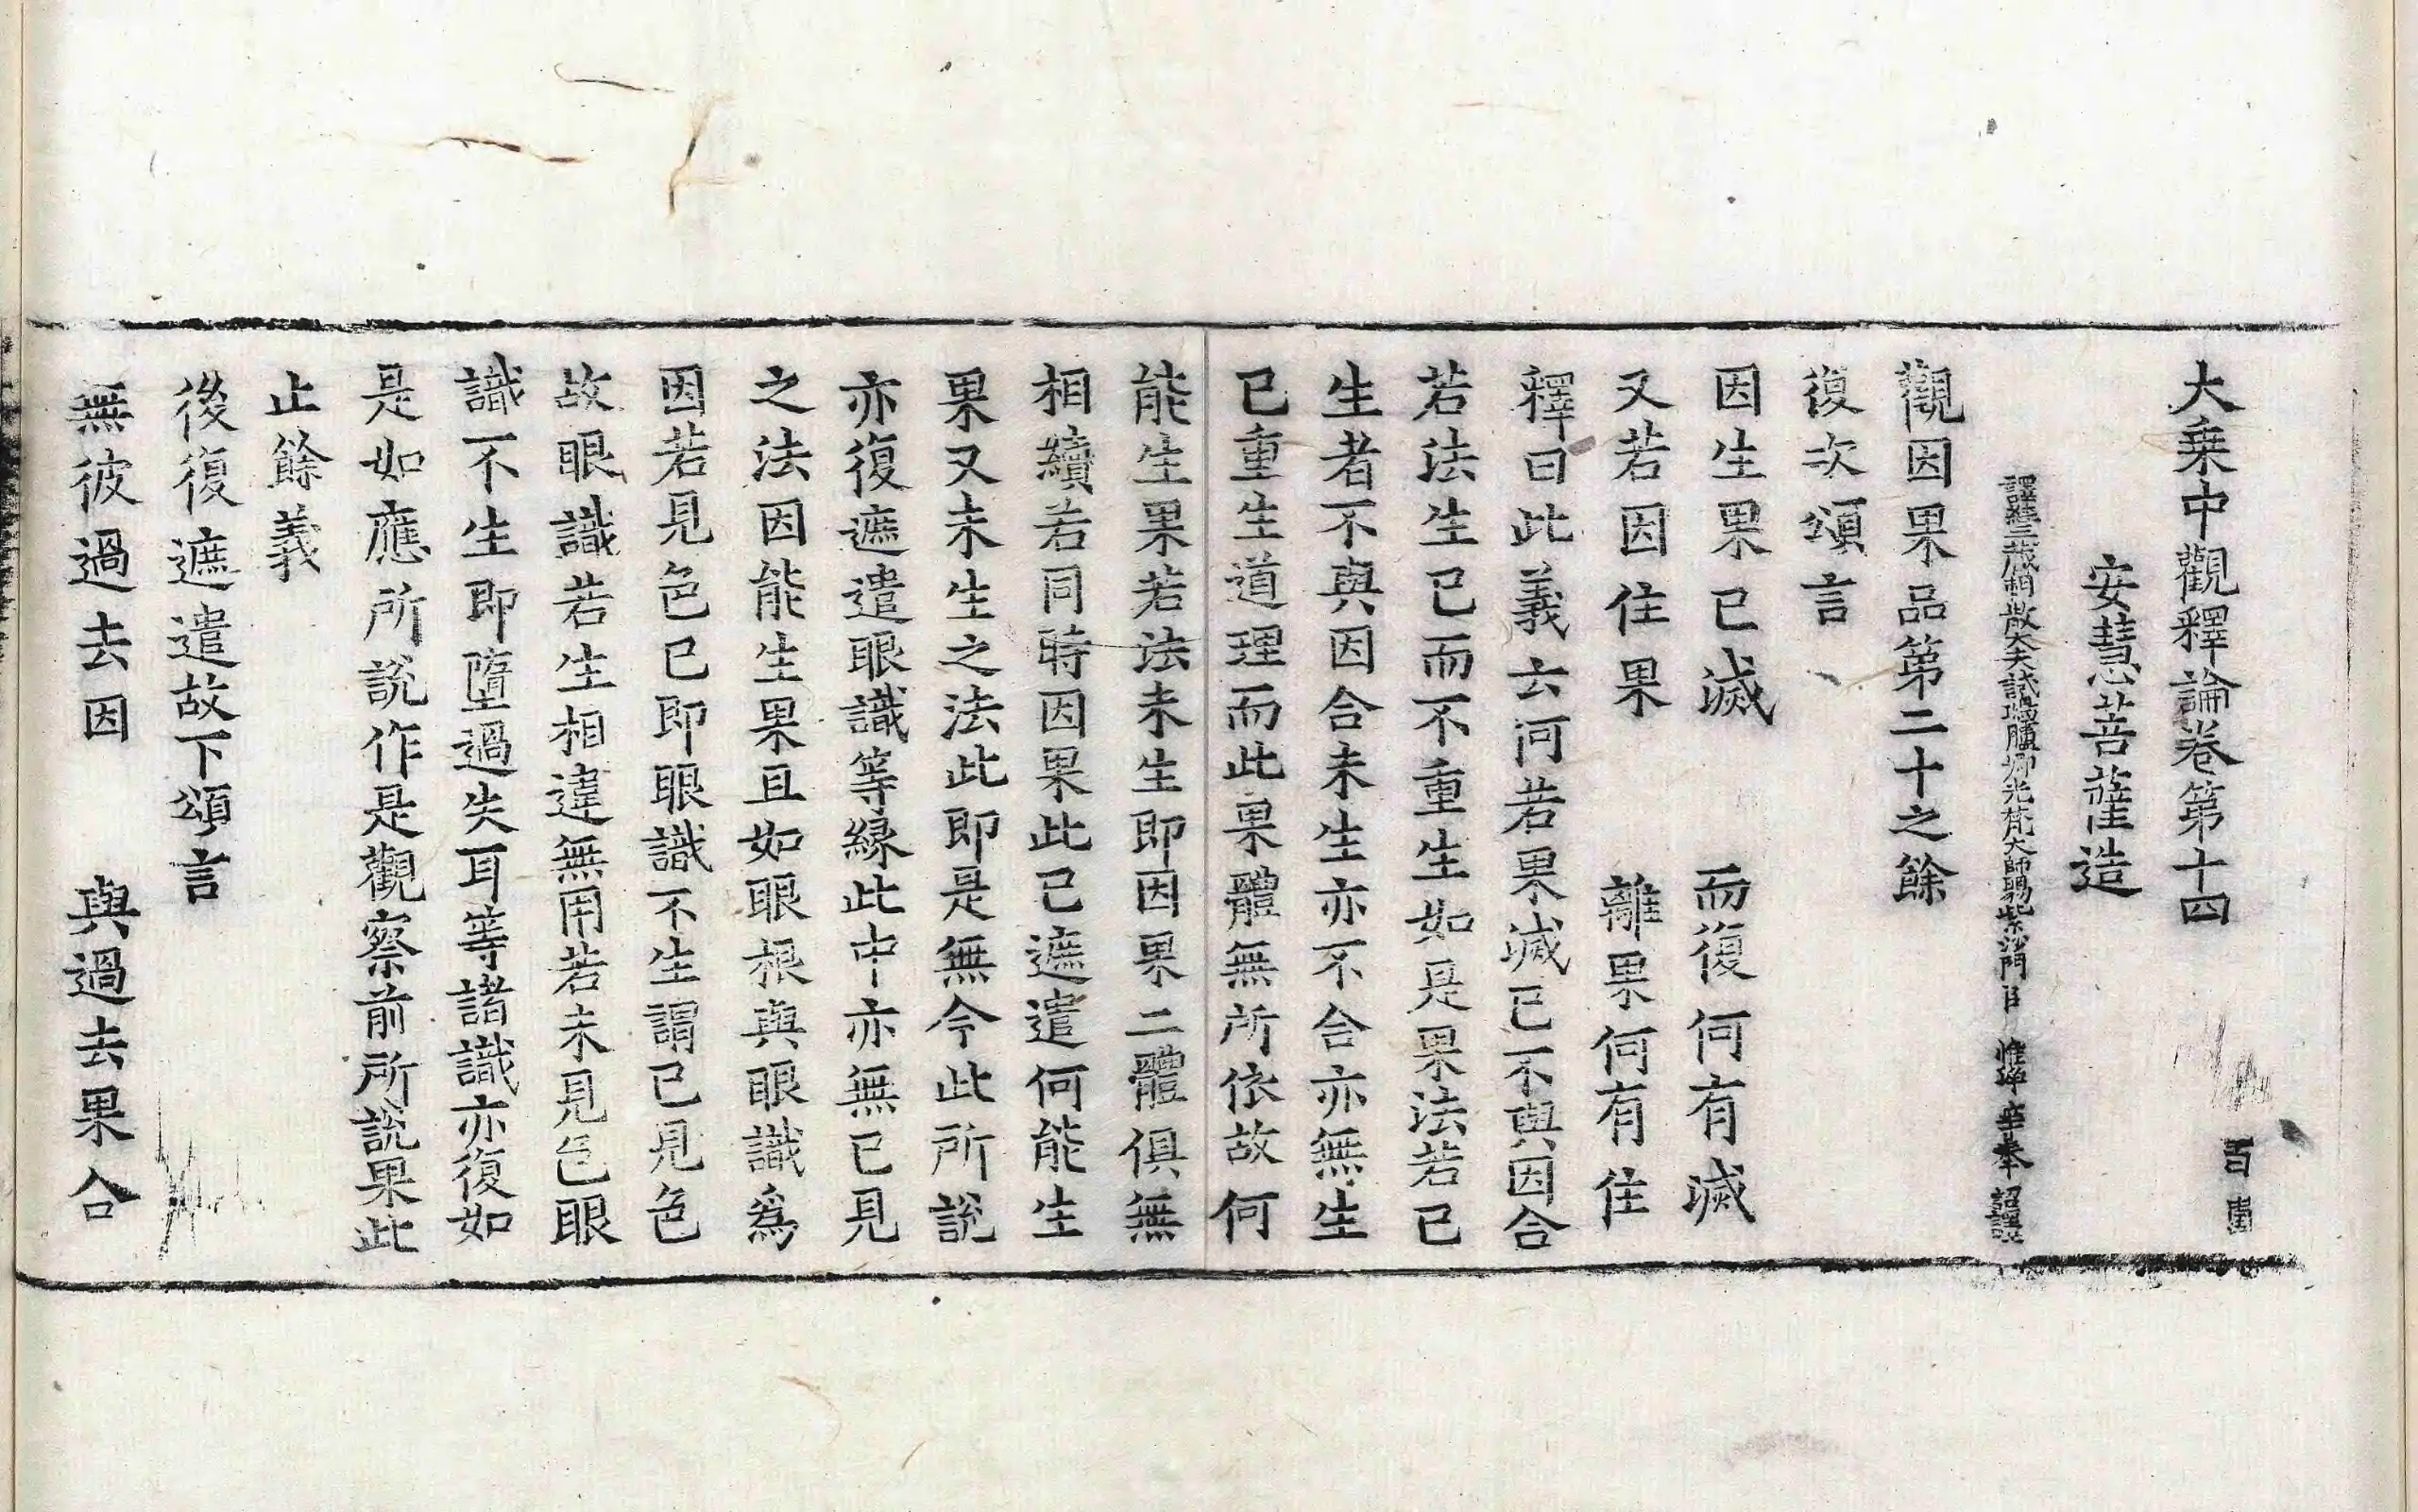 大乗中觀釋論卷第十四　百
安慧菩薩造
譯經三藏朝散大夫試鴻臚卿光梵大師賜紫沙門臣　惟淨等奉　詔譯
觀因果品第二十之餘
復次頌言
因生果已滅　而復何有滅
又若因住果　離果何有住
釋曰此義云何若果滅已不與因合
若法生已而不重生如是果法若已
生者不與因合未生亦不合亦無生
已重生道理而此果體無所依故何
能生果若法未生即因果二體俱無
相續若同時因果此已遮遣何能生
果又未生之法此即是無今此所說
亦復遮遣眼識等緣此中亦無已見
之法因能生果且如眼根與眼識爲
因若見色已即眼識不生謂已見色
故眼識若生相違無用若未見色眼
識不生即墮過失耳等諸識亦復如
是如應所說作是觀察前所說果此
止餘義
後復遮遣故下頌言
無彼過去因　與過去果合